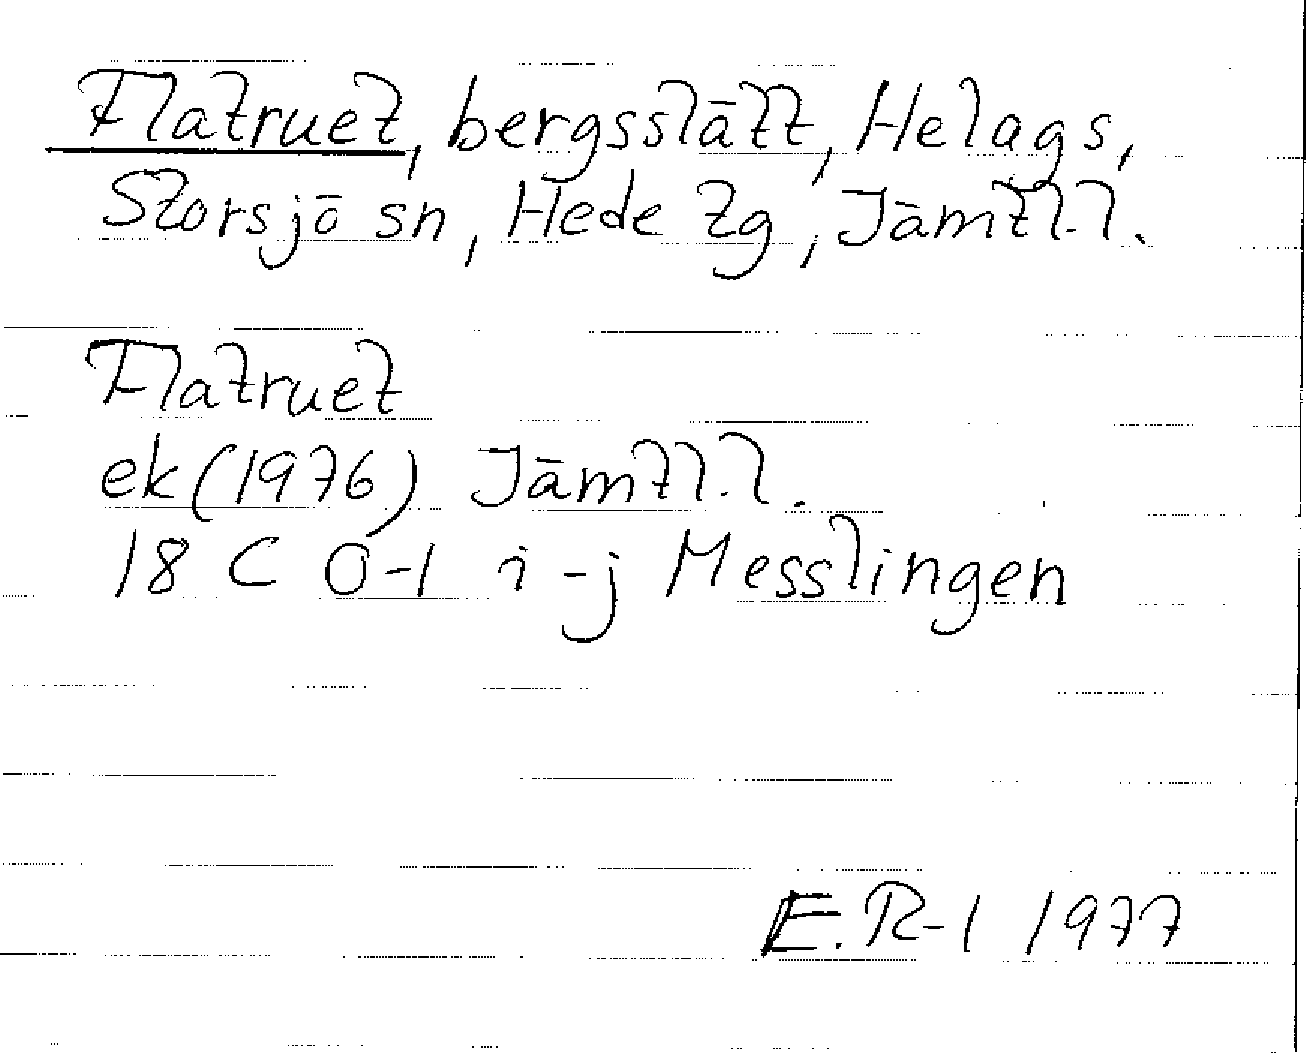 Flatruet, bergsslätt, Helags,
Storsjö sn, Hede tg, Jämtl.l.
Flatruet
ek (1976) Jämtl.l.
18 C 0-1 i-j Messlingen
E.R-l 1977